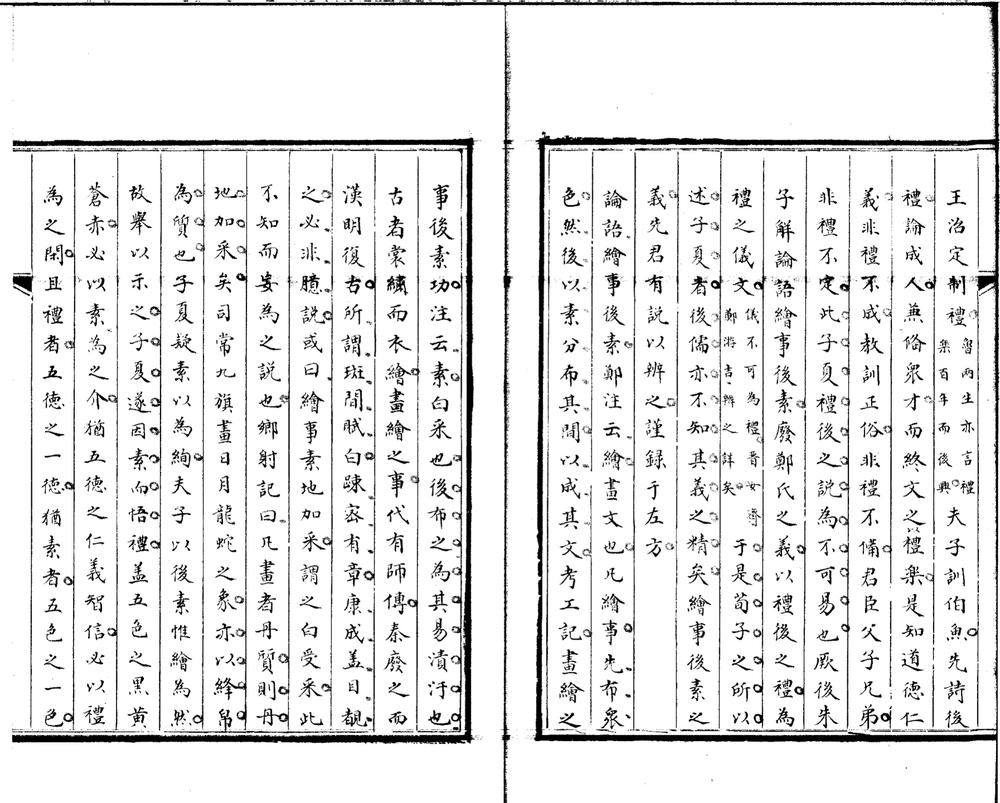 王治定制禮魯兩生亦言禮樂百年而後興夫子訓伯魚先詩後
禮論成人兼脩眾才而終文之以禮樂是知道德仁
義非禮不成教訓正俗非禮不備君臣父子兄弟
非禮不定此子夏禮後之說為不可易也厥後朱
子解論語繪事後素廢鄭氏之義以禮後之禮為
禮之儀文儀不可為禮晉女鄭游吉辨之詳矣于是荀子之所以
述子夏者後儒亦不知其義之精矣繪事後素之
義先君有說以辨之謹録于左方
論語繪事後素鄭注云繪畫文也凡繪事先布眾
色然後以素分布其間以成其文考工記畫繪之
事後素功注云素白采也後布之為其易漬汙也
古者裳繡而衣繪畫繪之事代有師傳秦廢之而
漢明復古所謂斑間賦白疎密有章康成蓋目覩
之必非臆說或曰繪事素地加采謂之白受采此
不知而妄為之說也鄉射記曰凡畫者丹質則丹
地加采矣司常九旗畫日月龍蛇之象亦以絳帛
為質也子夏疑素以為絢夫子以後素惟繪為然
故舉以示之子夏遂因素而悟禮蓋五色之黑黃
蒼赤必以素為之介猶五德之仁義智信必以禮
為之閑且禮者五德之一德猶素者五色之一色